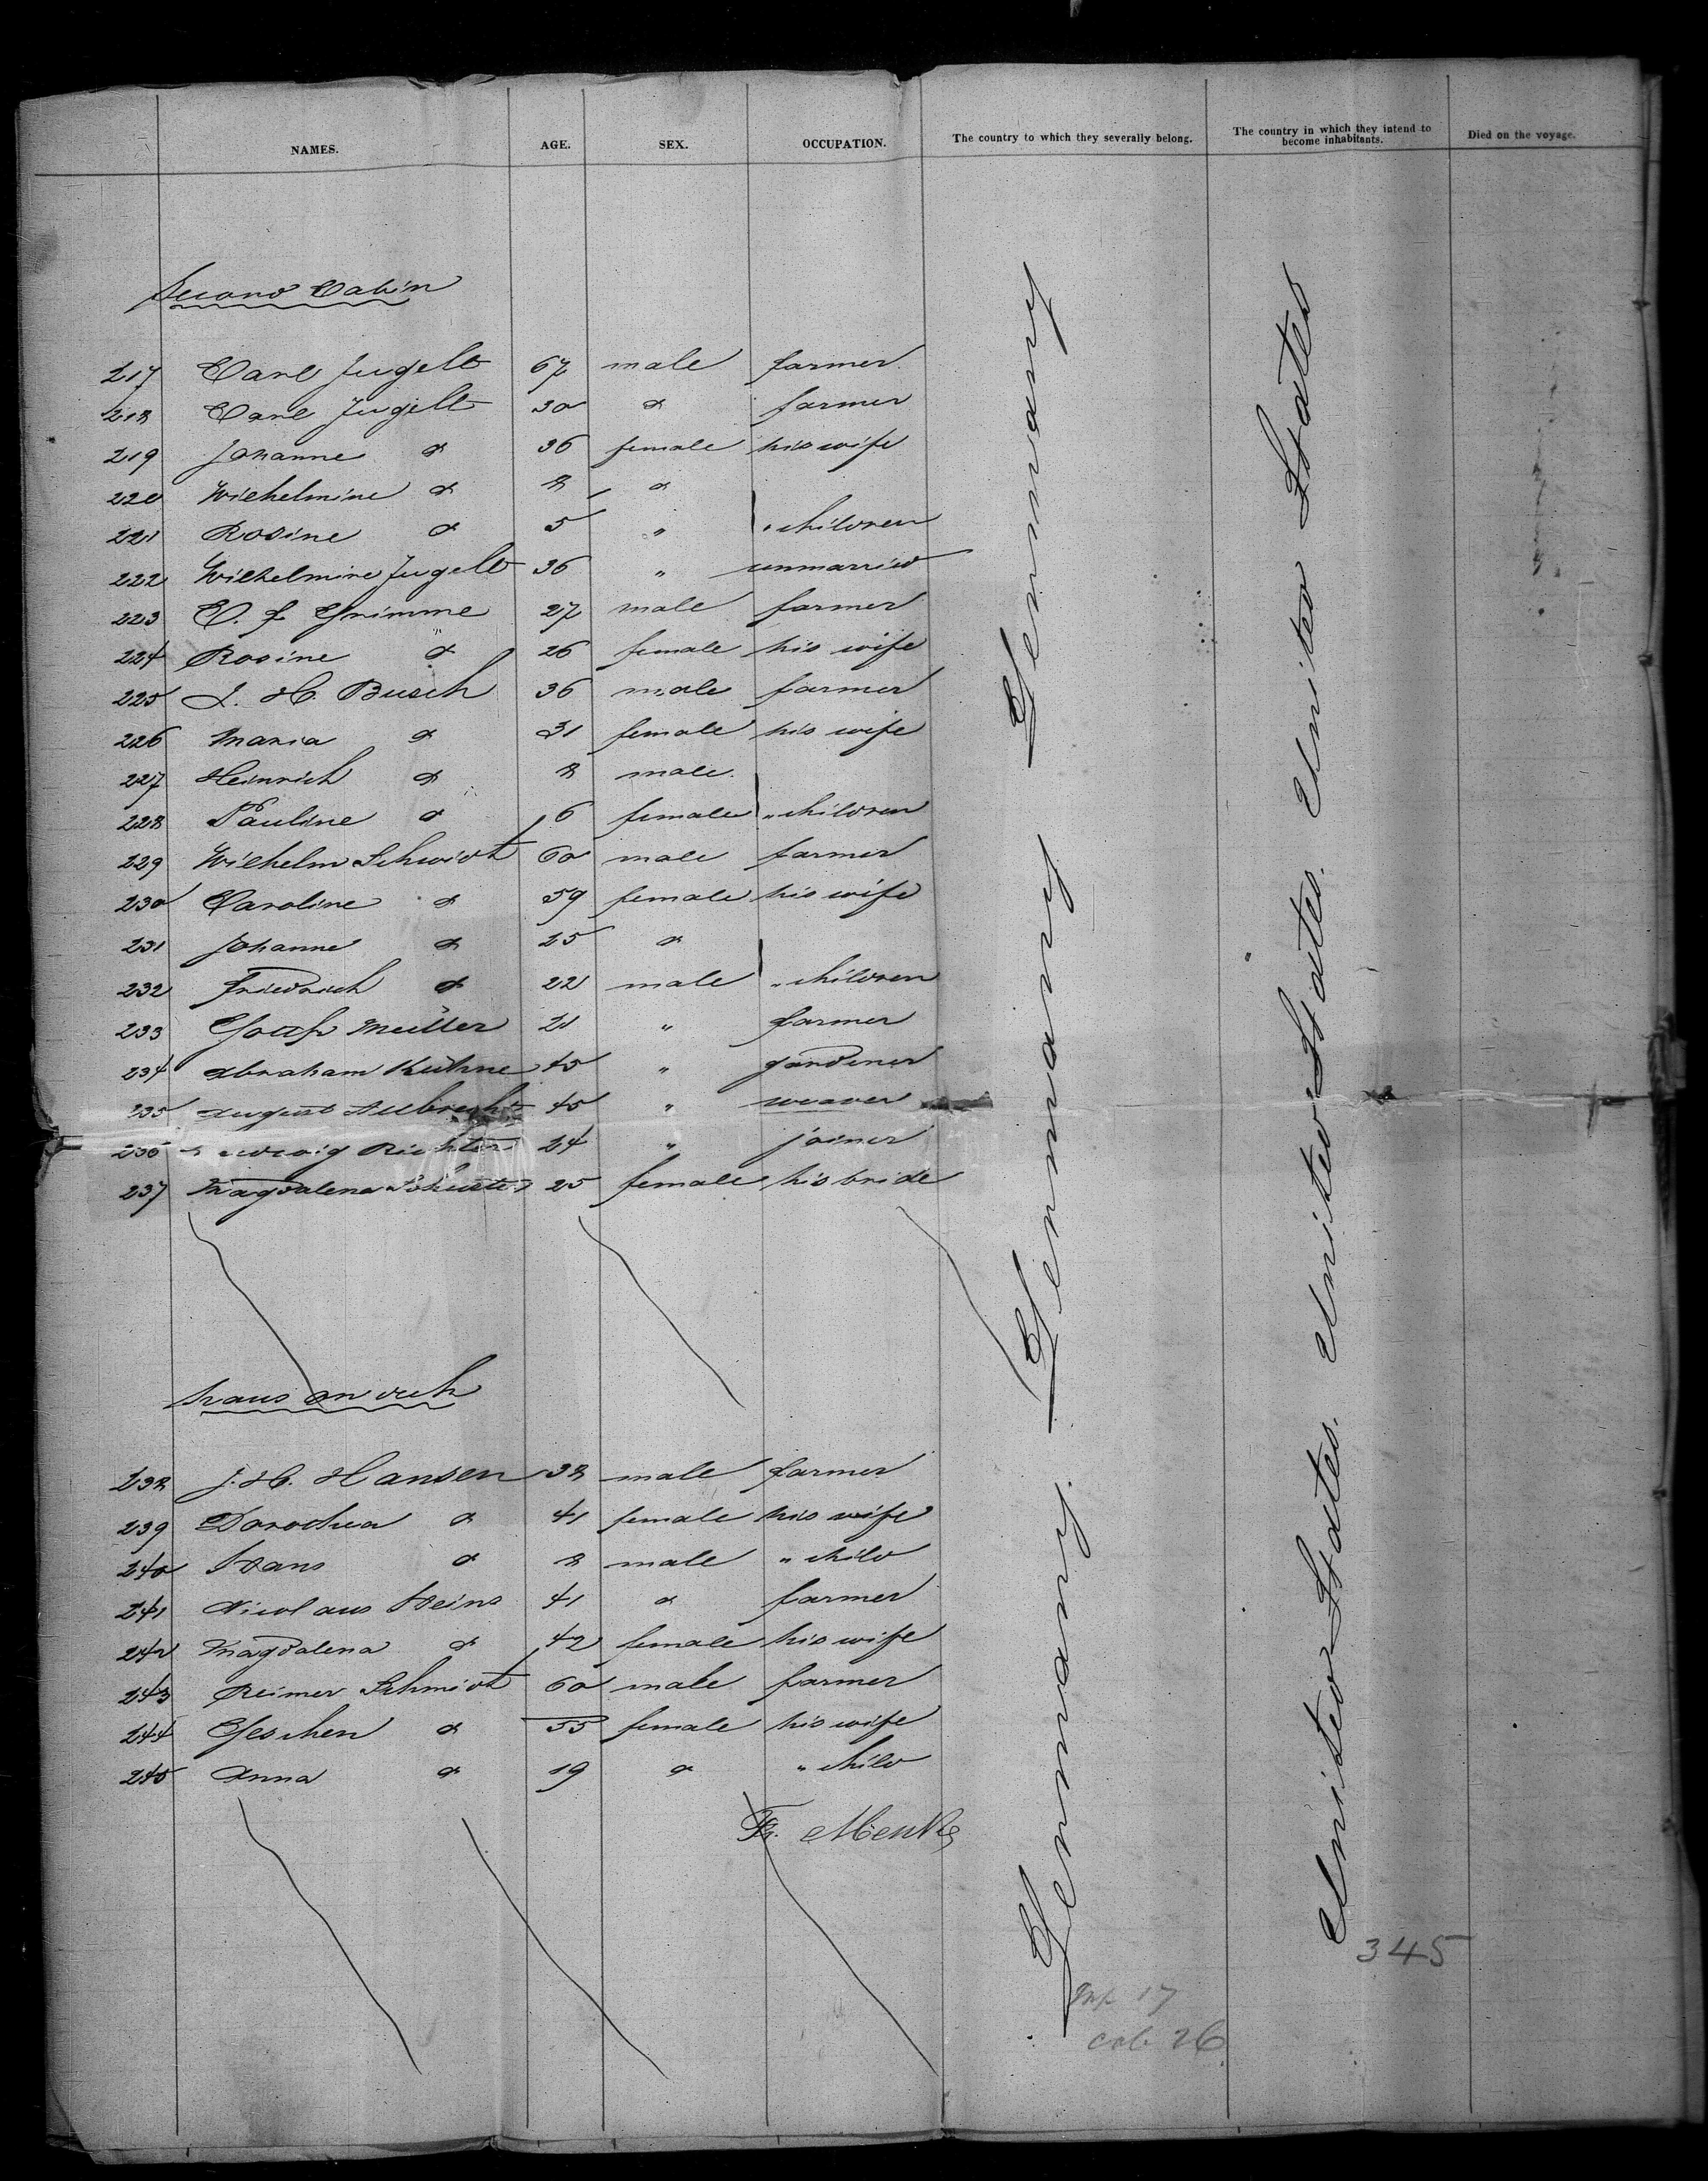 NAMES. AGE. SEX. OCCUPATION. The country to which they severally belong. The country in which they intend to become inhabitants. Died on the voyage.
Second Cabin
217 Carl Jugelt 67 male farmer
218 Carl Jugelt 30 do farmer
219 Johanne do 36 female his wife
220 Wilhelmine do 8 do
221 Rosine do 5 " " children
222 Wilhelmine Jugelt 36 " unmarried
223 C. F. Grimme 27 male farmer
224 Rosine do 26 female his wife
225 J. H. Busch 36 male farmer
226 Maria do 31 female his wife
227 Heinrich do 8 male
228 Pauline do 6 female " children
229 Wilhelm Schmidt 60 male farmer
230 Caroline do 59 female his wife
231 Johanne do 25 do
232 Friedrich do 22 male " children
233 Müller 21 " farmer
234 Abraham Kühne 45 " gardener
235 August Albrecht 45 " weaver
236 Ludwig Richter 24 " joiner
237 Magdalena Schuster 25 female his bride
haus on deck
238 J. H. Hansen 38 male farmer
239 Dorothea do 41 female his wife
240 Hans do 8 male " child
241 Nicolaus Heins 41 do farmer
242 Magdalena do 42 female his wife
243 Reimer Schmidt 60 male farmer
244 Geschen do 55 female his wife
245 Anna do 19 do " child
Germany. Germany Germany
United States. United States. United States
345
17
cab 26